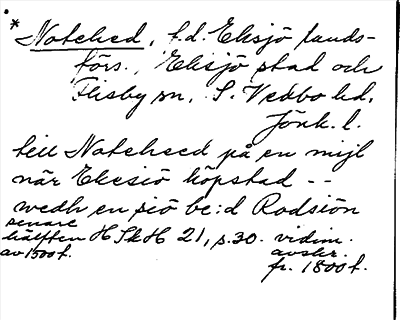 * Notehed, f.d. Eksjö lands-
förs., Eksjö stad och
Flisby sn, S. Vedbo hd,
Jönk. l.
till Noteheed på en mijl
när Ekesiö köpstad --
wedh en siö be:d Rodsiön
senare
hälften HSkH 21, s.30. vidim.
av 1500t. avskr.
fr. 1800t.